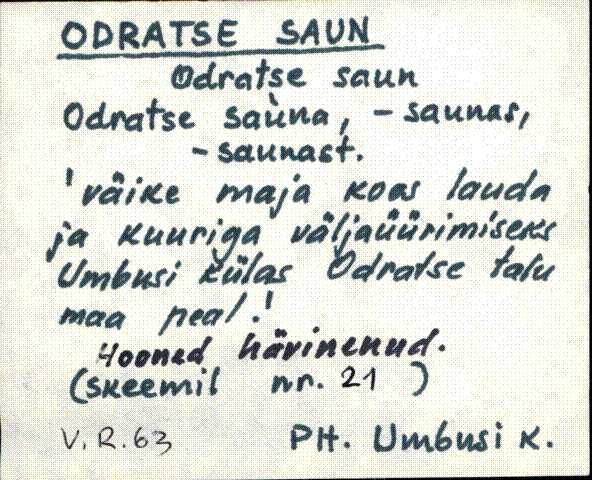 ODRATSE SAUN
Odratse saun
Odratse saùna, - saunas,
- saunast.
'väike maja koos lauda
ja kuuriga väljaüürimiseks
Umbusi külas Odratse talu
maa peal.'
Hooned hävinenud.
(skeemil nr. 21 )
V. R. 63 PH. Umbusi k.